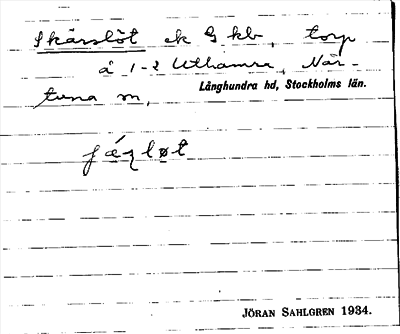 Skärslöt ek G kb, torp
å 1-2 Uthamra, När-
tuna sn,
Långhundra hd, Stockholms län.
JÖRAN SAHLGREN 1934.